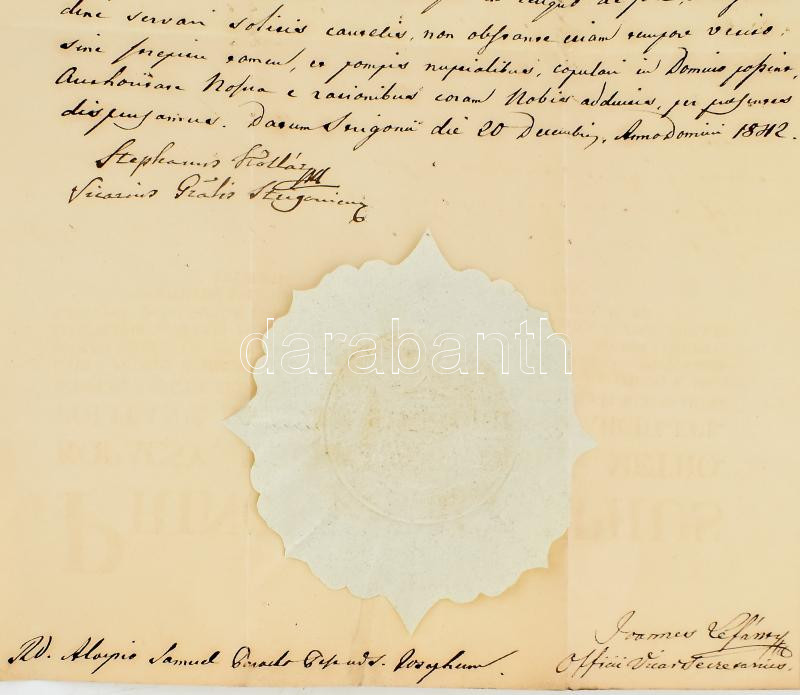 dine servari solitis cautelis, non obstante etiam tempore vetito,
sine strepitu tamen, et pompis nuptialibus, copulari in Domino possint,
Authoritate Nostra e rationibus coram Nobis adductis, per praesentes
dispensamus. Datum Strigonii die 20 Decembris, Anno Domini 1842.
Stephanus Kollár
Vicarius Gralis Strigoniensis
darabanth
RD. Aloysio Samuel Parocho Josephum.
Joannes
Officii Vicar Secretarius.